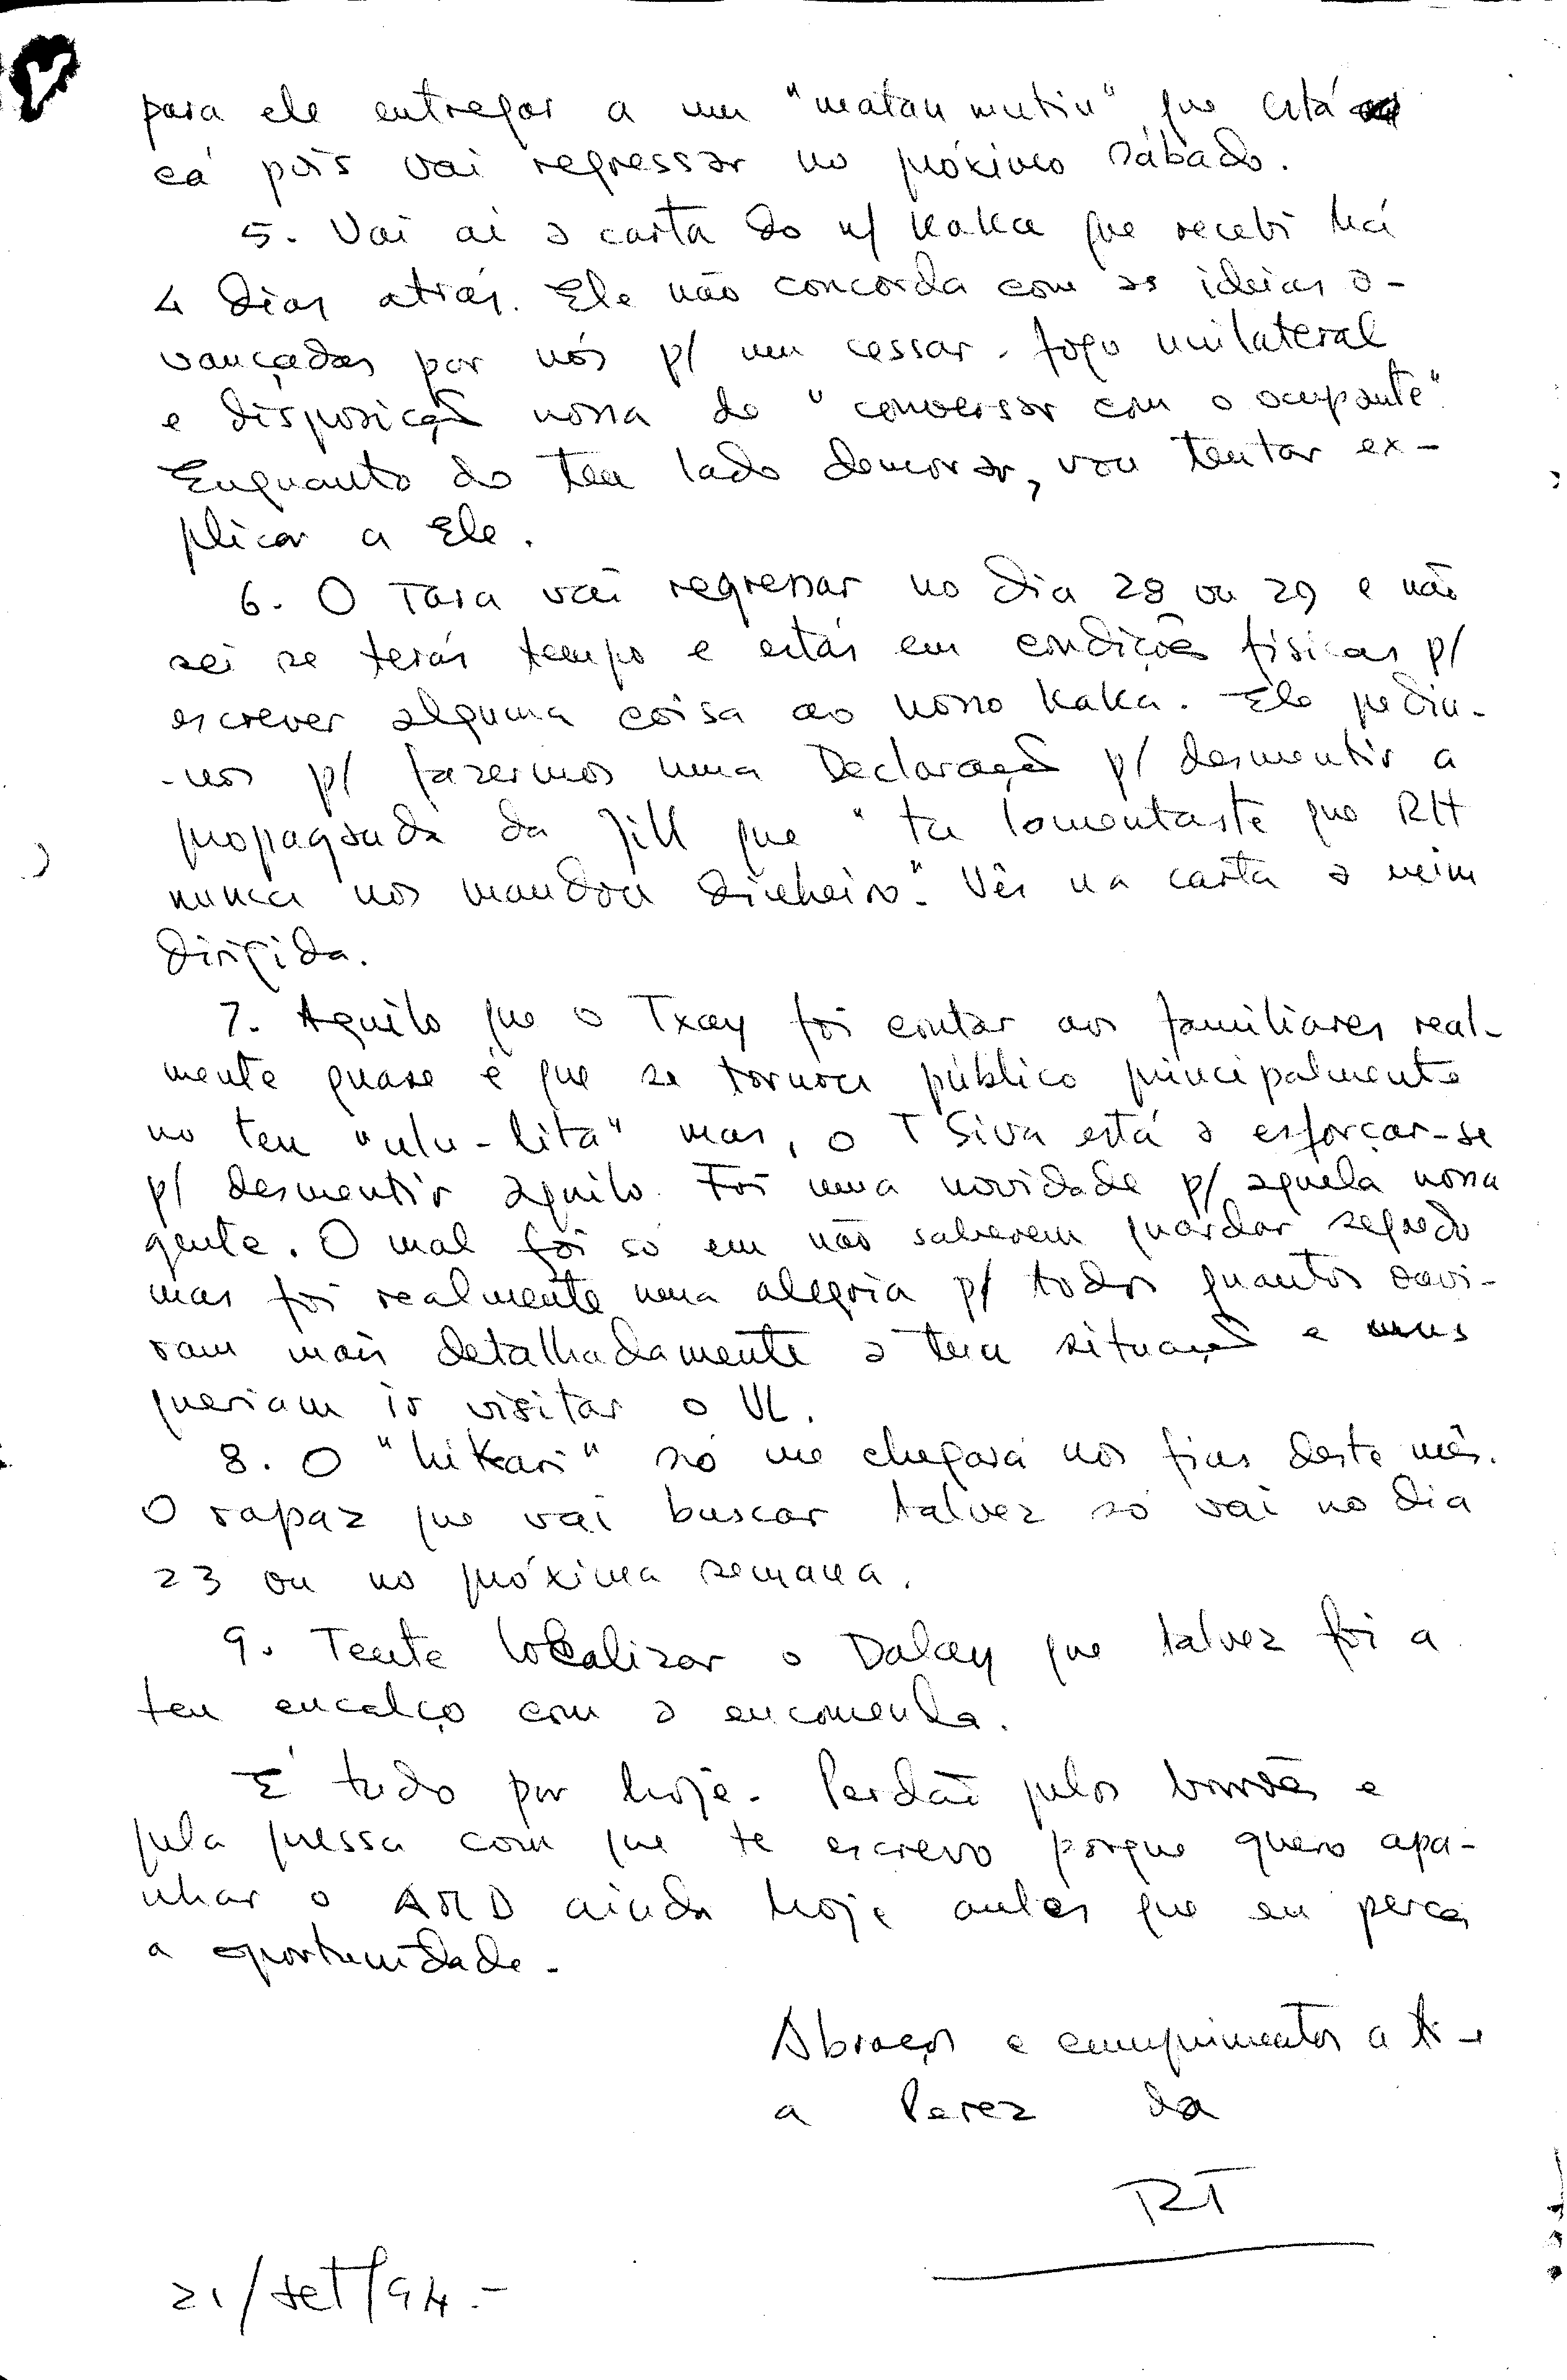 para ele entregar a um "matan mutin" que está
cá pois vai regressar no próximo sábado.
5. Vai aí a carta do n/ Kaka que recebi há
4 dias atrás. Ele não concorda com as ideias a-
vançadas por nós p/ um cessar-fogo unilateral
e disposição nossa de "conversar com o ocupante".
Enquanto do teu lado demorar, vou tentar ex-
plicar a Ele.
6. O Tara vai regressar no dia 28 ou 29 e não
sei se terás tempo e estás em condições físicas p/
escrever alguma coisa ao nosso Kaka. Ele pediu-
-nos p/ fazermos uma Declaração p/ desmentir a
propaganda da Jill que "tu lamentaste que RH
nunca nos mandou dinheiro". Vês na carta a mim
dirigida.
7. Aquilo que o Txay foi contar aos familiares real-
mente quase é que se tornou público principalmente
no teu "ulu-lita" mas, o T Siva está a esforçar-se
p/ desmentir aquilo. Foi uma novidade p/ aquela nossa
gente. O mal foi só em não saberem guardar segredo
mas foi realmente uma alegria p/ todos quantos ouvi-
ram mais detalhadamente a tua situação e uns
queriam ir visitar o VL.
8. O "hikari" só me chegará nos fins deste mês.
O rapaz que vai buscar talvez só vai no dia
23 ou na próxima semana.
9. Tente localizar o Dalay que talvez foi a
teu encalço com a encomenda.
É tudo por hoje. Perdão pelos borrões e
pela pressa com que te escrevo porque quero apa-
nhar o AMD ainda hoje antes que eu perca
a oportunidade.-
Abraços e cumprimentos a ti e
a Perez da
RT
21/set/94.-